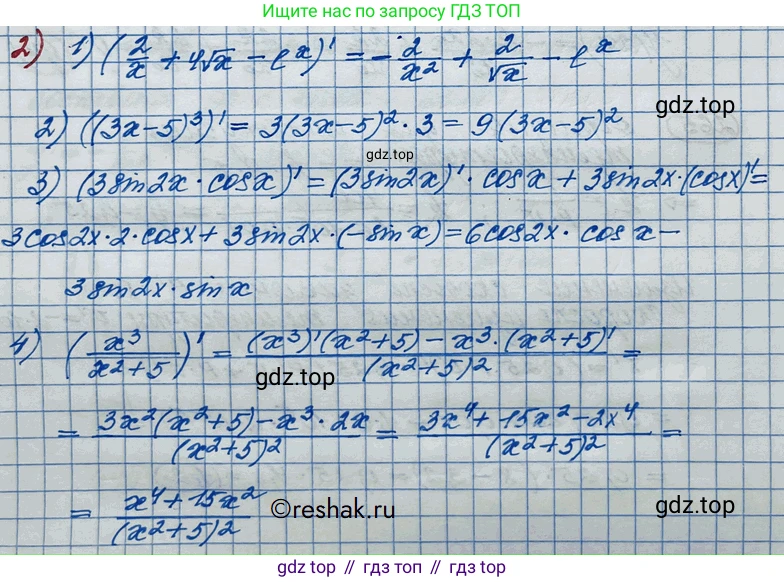 Ищите нас по запросу ГДЗ ТОП
2) 1) (2/x + 4√x - e^x)' = -2/x² + 2/√x - e^x
gdz.top
2) ((3x-5)³)' = 3(3x-5)²·3 = 9(3x-5)²
gdz.top
3) (3sin2x·cosx)' = (3sin2x)'·cosx + 3sin2x·(cosx)' =
3cos2x·2·cosx + 3sin2x·(-sinx) = 6cos2x·cosx -
3sin2x·sinx
4) (x³/(x²+5))' = ((x³)'(x²+5) - x³·(x²+5)')/(x²+5)² =
gdz.top
= (3x²(x²+5) - x³·2x)/(x²+5)² = (3x⁴+15x²-2x⁴)/(x²+5)² =
= (x⁴+15x²)/(x²+5)²
©reshak.ru
gdz.top
gdz.top // гдз топ // gdz.top